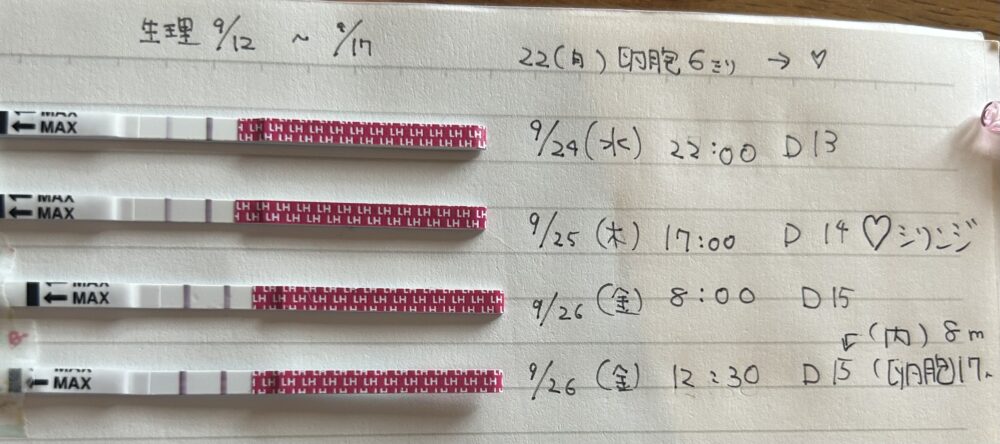 生理 9/12 ~ 9/17
22(月) 卵胞6ミリ → ♡
← MAX LH LH LH LH LH LH LH LH LH LH 9/24(水) 22:00 D13
← MAX LH LH LH LH LH LH LH LH LH LH 9/25(木) 17:00 D14 ♡シリンジ
← MAX LH LH LH LH LH LH LH LH LH LH 9/26(金) 8:00 D15
↙(内) 8m
← MAX LH LH LH LH LH LH LH LH LH LH 9/26(金) 12:30 D15 (卵胞)17.